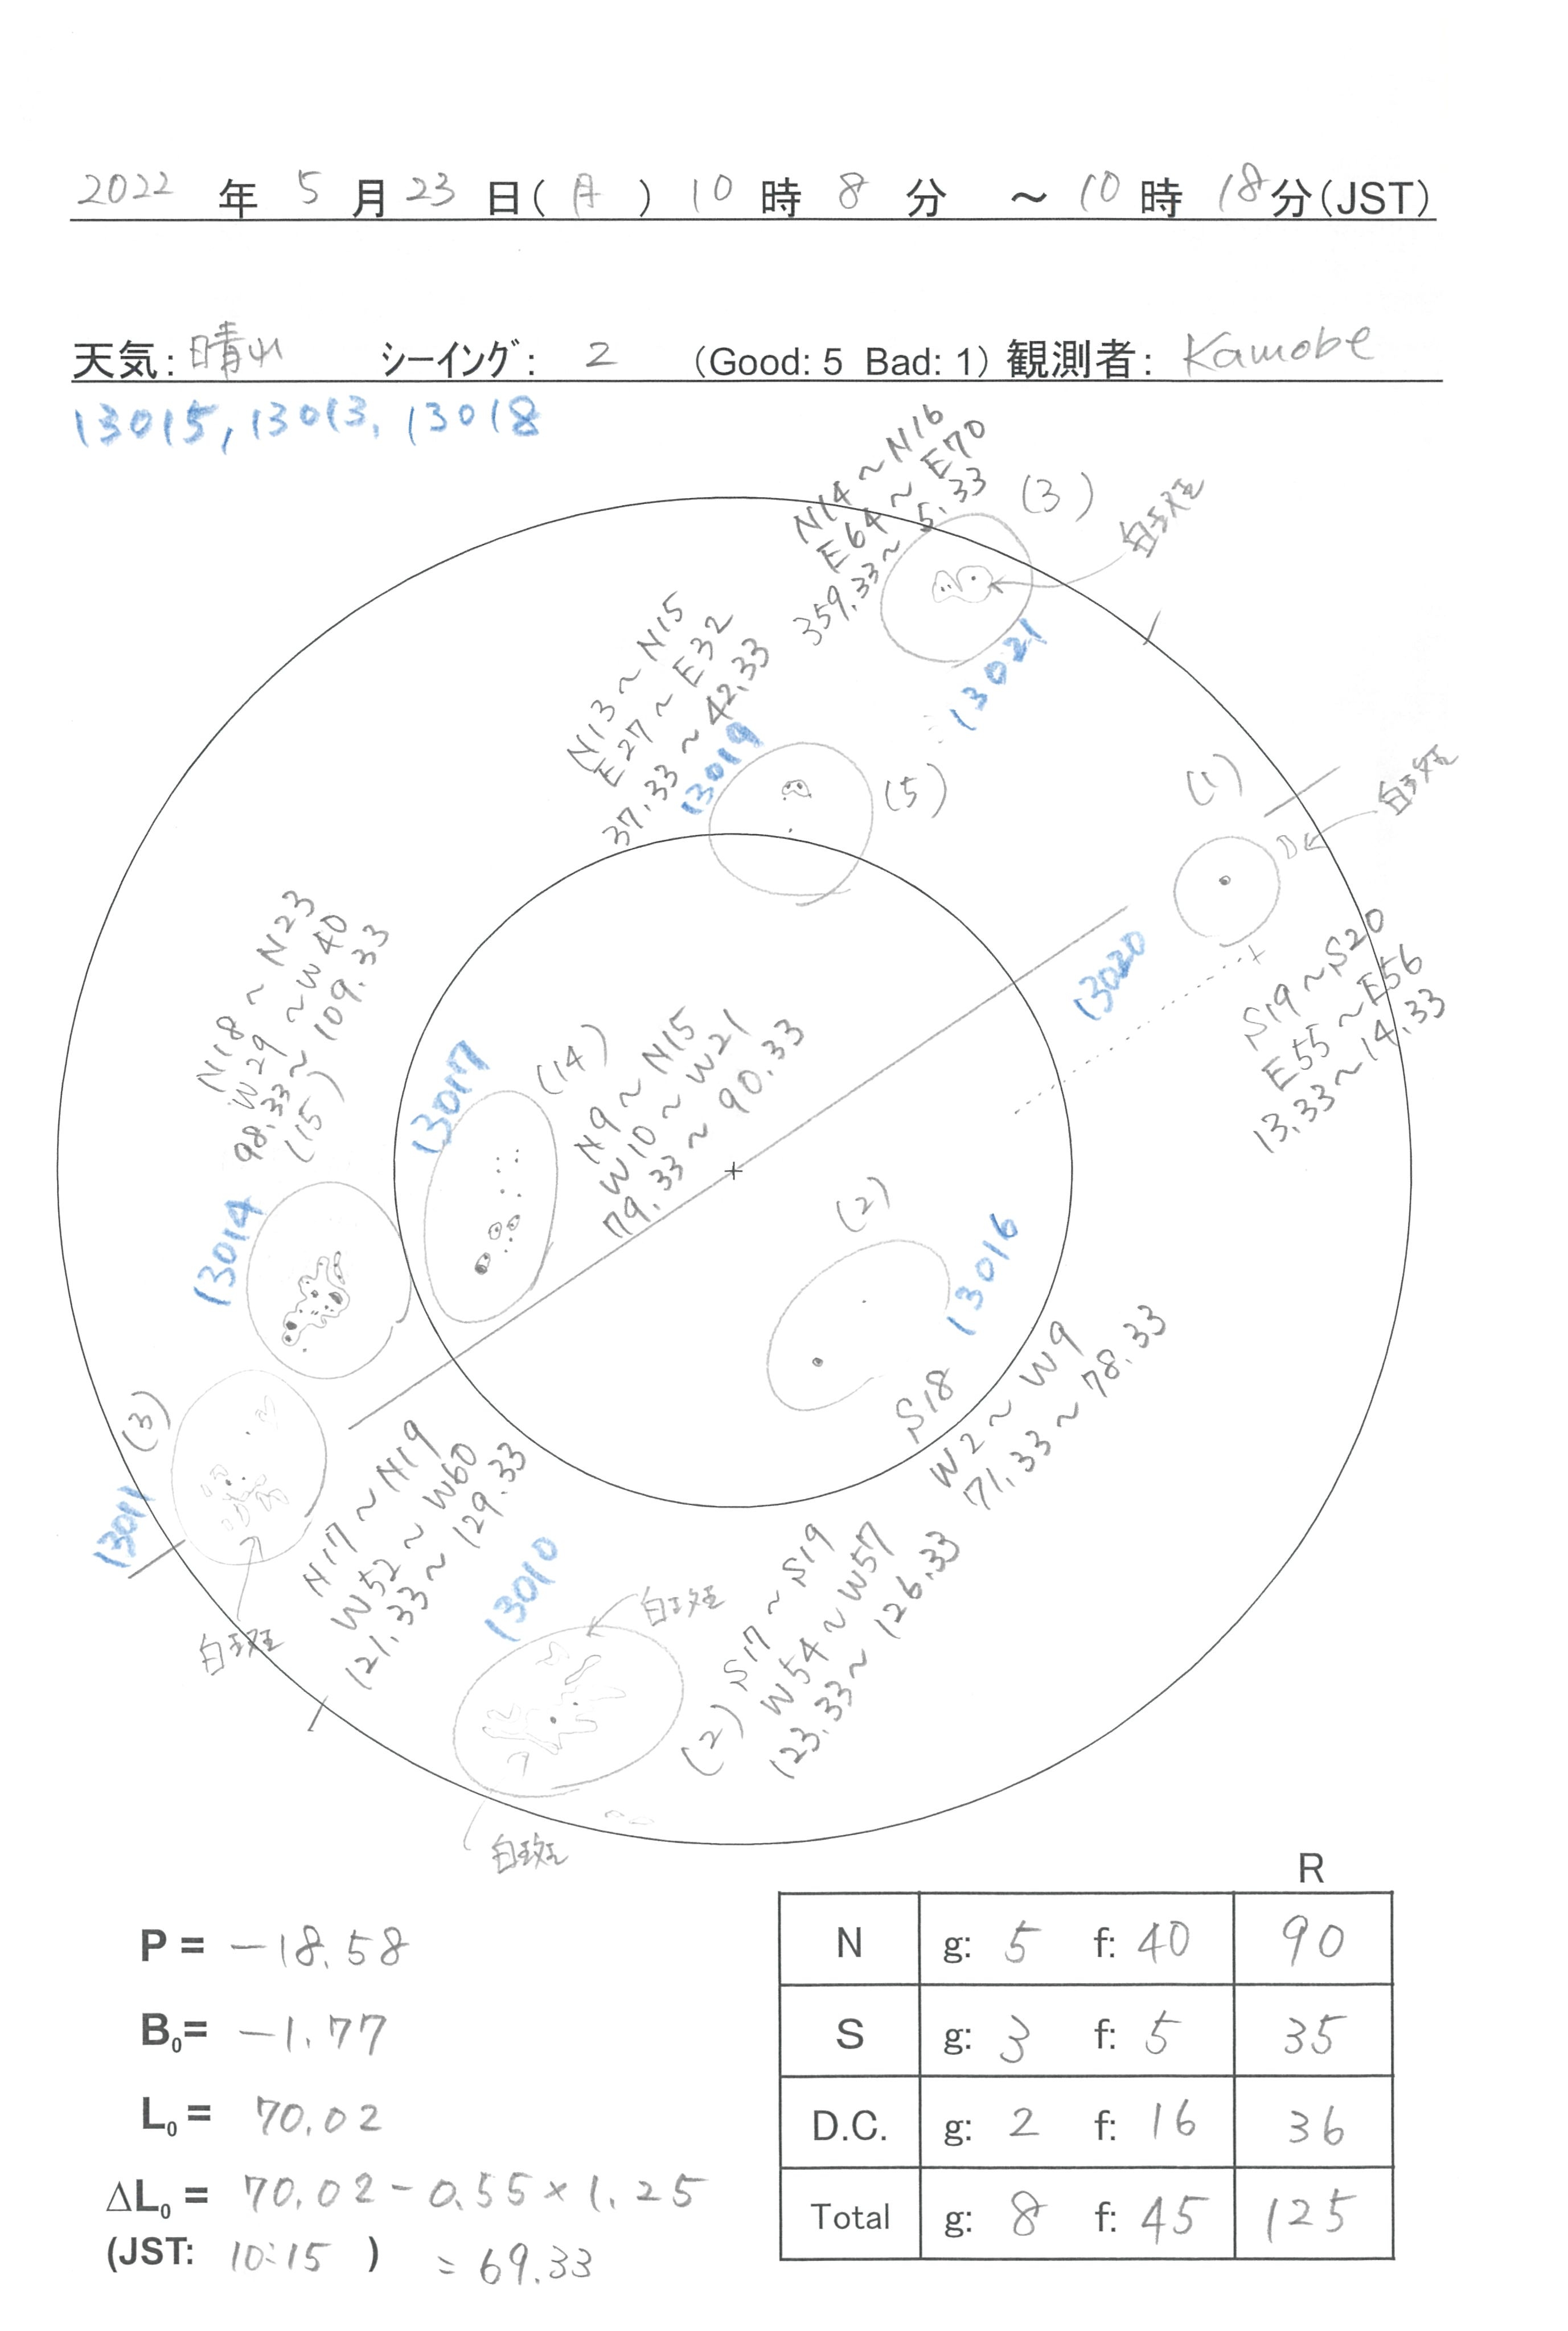 2022 年 5 月 23 日(月) 10 時 8 分 ～ 10 時 18分(JST)
天気: 晴れ ｼｰｲﾝｸﾞ: 2 (Good: 5 Bad: 1) 観測者: Kamobe
13015, 13013, 13018
N14 ~ N16
E64 ~ E70
359.33 ~ 5.33
(3)
白斑
13021
N13 ~ N15
E27 ~ E32
37.33 ~ 42.33
13019
(5)
(1)
白斑
13020
S19 ~ S20
E55 ~ E56
13.33 ~ 14.33
N18 ~ N23
W29 ~ W40
98.33 ~ 109.33
(15)
13014
13017
(14)
N9 ~ N15
W10 ~ W21
79.33 ~ 90.33
(2)
13016
S18
W2 ~ W9
71.33 ~ 78.33
(3)
13011
白斑
N17 ~ N19
W52 ~ W60
121.33 ~ 129.33
13010
白斑
(2)
S17 ~ S19
W54 ~ W57
123.33 ~ 126.33
白斑
P = -18.58
B0= -1.77
L0 = 70.02
ΔL0 = 70.02 - 0.55 × 1.25
(JST: 10:15 ) = 69.33
R
N g: 5 f: 40 90
S g: 3 f: 5 35
D.C. g: 2 f: 16 36
Total g: 8 f: 45 125